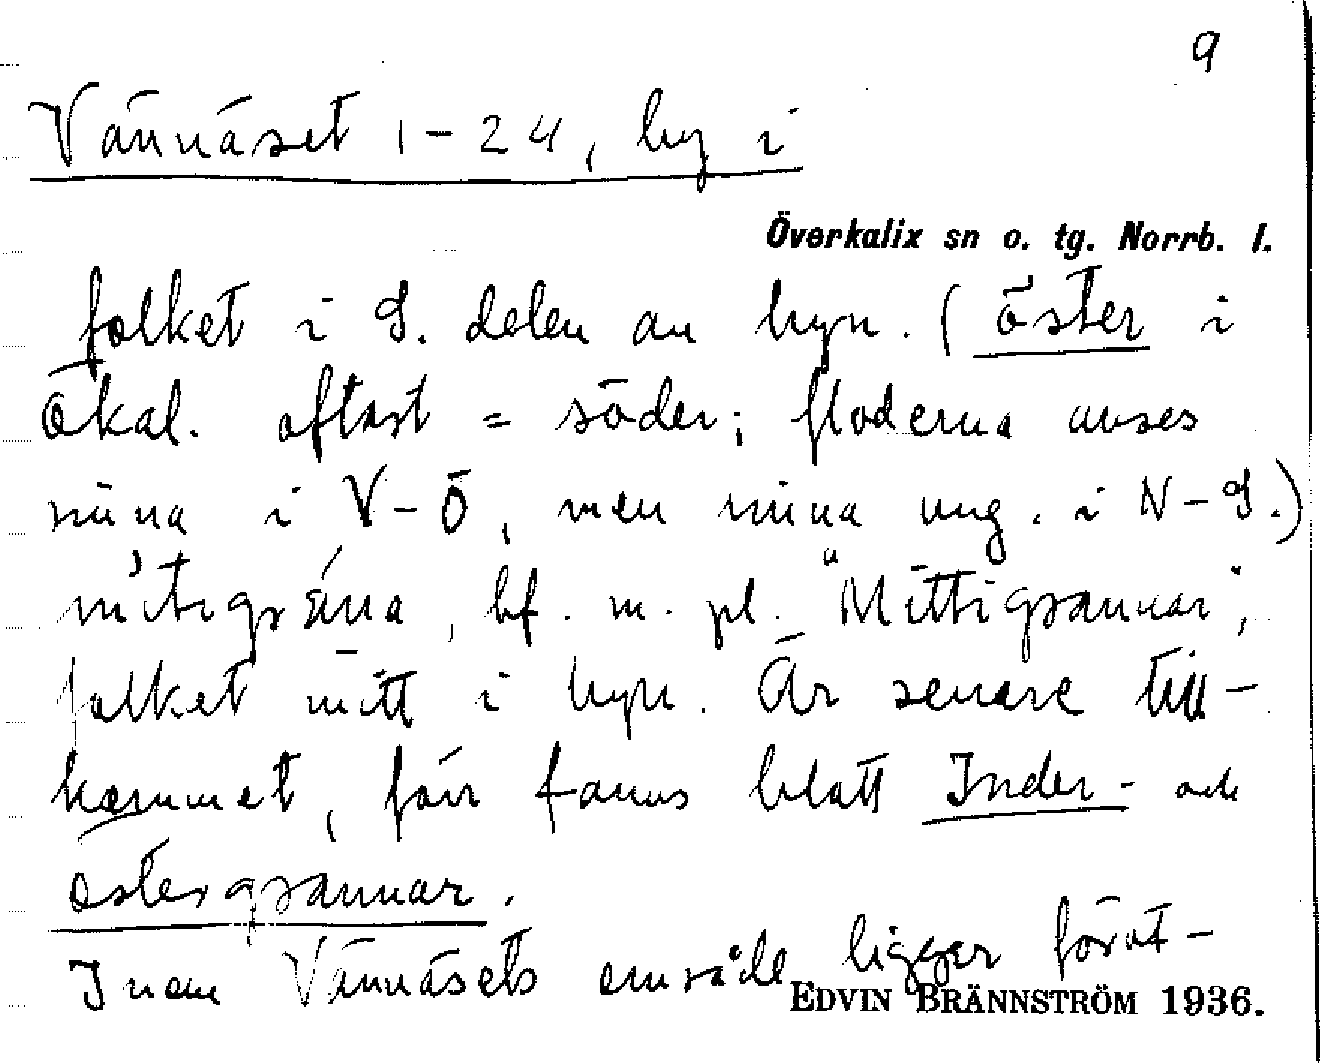 9
Vännäset 1-24, by i
Överkalix sn o. tg. Norrb. l.
folket i S. delen av byn. (öster i
Ökal. oftast = söder; floderna anses
rinna i V-Ö, men rinna ung. i N-S.)
bf. m. pl. "Mittigrannar",
folket mitt i byn. Är senare till-
kommet, förr fanns blott Inder- och
östergrannar.
Inom Vännäsets område ligger förut-
EDVIN BRÄNNSTRÖM 1936.